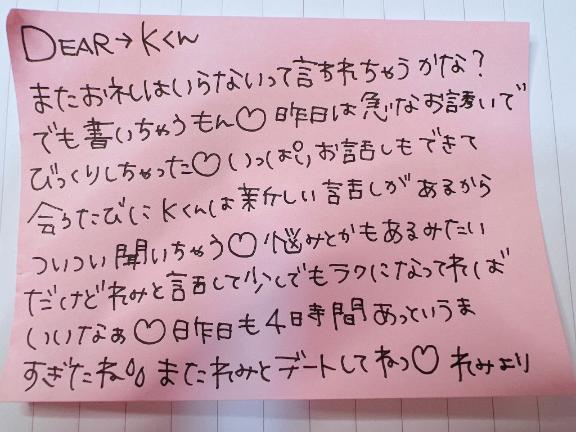 DEAR→Kくん
またお礼はいらないって言われちゃうかな?
でも書いちゃうもん♡昨日は急なお誘いで
びっくりしちゃった♡いっぱいお話しもできて
会うたびにKくんは新しい話しがあるから
ついつい聞いちゃう♡悩みとかもあるみたい
だけどれみと話して少しでもラクになってれば
いいなぁ♡昨日も4日時間あっというま
すぎたね。。またれみとデートしてねっ♡ れみより